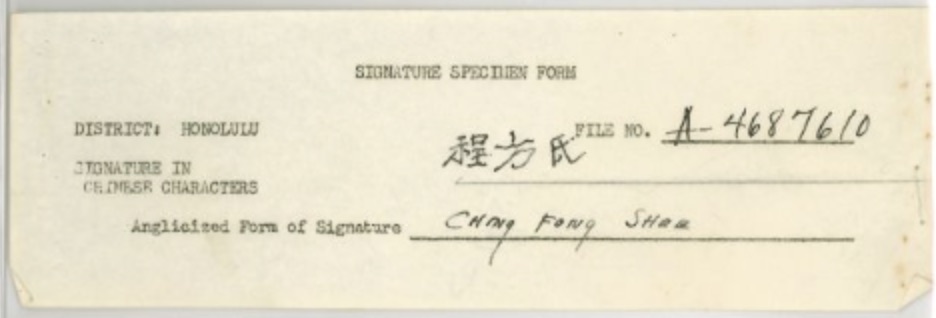 SIGNATURE SPECIMEN FORM
DISTRICT: HONOLULU
FILE NO. A-4687610
SIGNATURE IN
CHINESE CHARACTERS
程方氏
Anglicized Form of Signature Ching Fong Shee